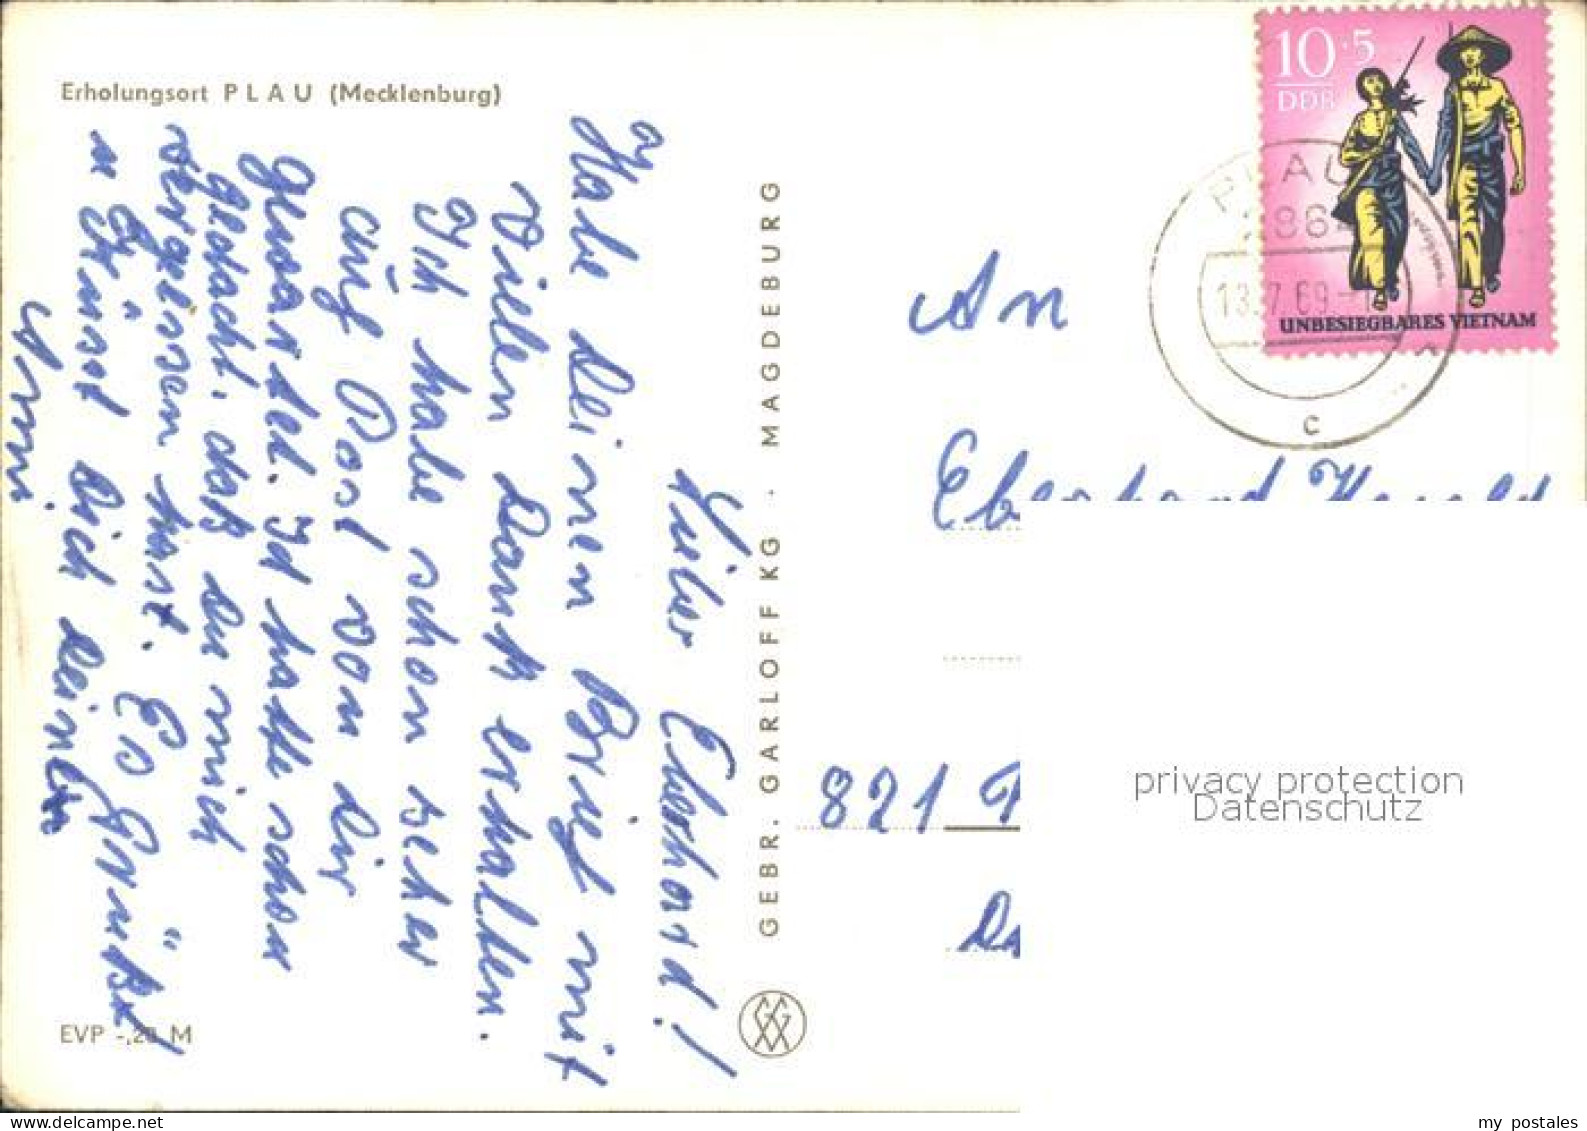 Erholungsort PLAU (Mecklenburg)
Lieber Eberhard!
Habe Deinen Brief mit
Vielen Dank erhalten.
Ich habe schon seher
auf Post von Dir
gewartet. Ich hatte schon
gedacht, daß Du mich
vergessen hast. Es Grüßt
u Küsst Dich Deine
EVP -,20 M
GEBR. GARLOFF KG · MAGDEBURG
10+5
DDR
UNBESIEGBARES VIETNAM
PLAU
13.7.69
c
An
Eberhard
821
privacy protection
Datenschutz
my postales